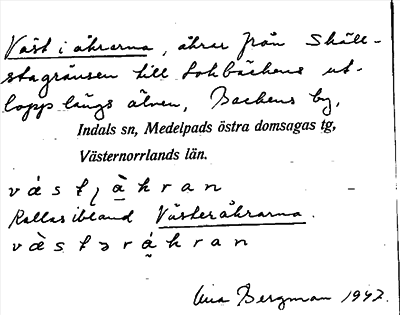 Väst i åkrarna, åkrar från Skäll-
stagränsen till Lokbäckens ut-
lopp längs älven, Backens by,
Indals sn, Medelpads östra domsagas tg,
Västernorrlands län.
Kallas ibland Västeråkrarna.
Bergman 1947.